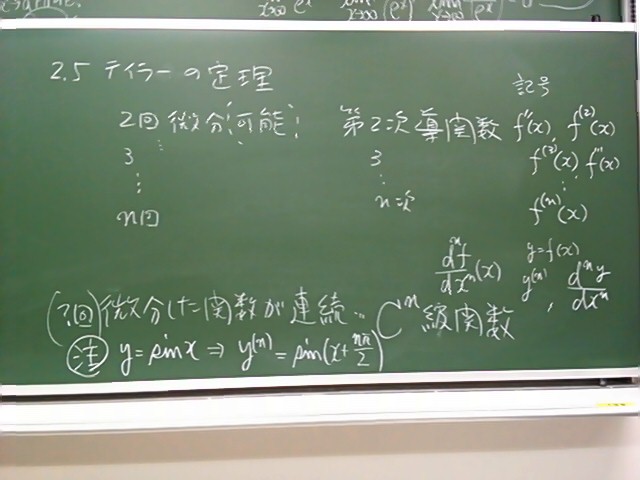 2.5 テイラーの定理
記号
2回 微分可能 第2次導関数 f''(x), f^{(2)}(x)
3 3 f^{(3)}(x), f'''(x)
⋮ ⋮ ⋮
n回 n次 f^{(n)}(x)
y=f(x)
d^n f/dx^n (x) y^{(n)}, d^n y/dx^n
微分した関数が連続… C^n 級関数
注 y=sin x ⇒ y^{(n)}=sin(x+nπ/2)